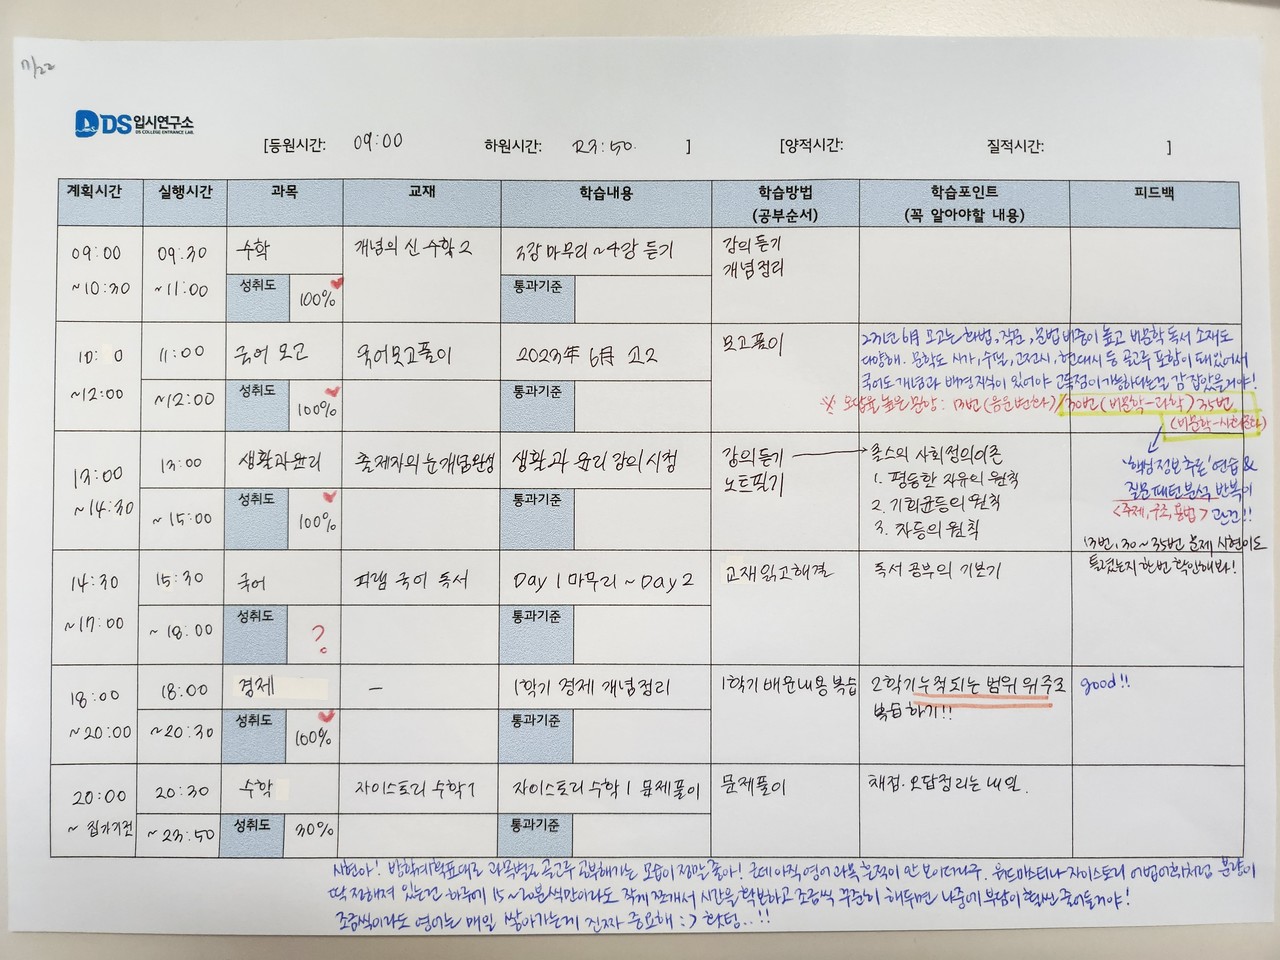 7/22
DS입시연구소
DS COLLEGE ENTRANCE LAB.
[등원시간: 09:00 하원시간: 23:50. ] [양적시간: 질적시간: ]
계획시간 실행시간 과목 교재 학습내용 학습방법 (공부순서) 학습포인트 (꼭 알아야할 내용) 피드백
09:00 ~10:30
09:30 ~11:00
수학
개념의 신 수학2
3강 마무리 ~ 4강 듣기
강의 듣기
개념정리
성취도 100%
통과기준
10: 0 ~12:00
11:00 ~12:00
국어 모고
국어모고풀이
2023年 6月 고2
모고풀이
성취도 100%
통과기준
23년 6月 모고는 화법, 작문, 문법 비중이 높고 비문학 독서 소재도
다양해. 문학도 시가, 수필, 고전시, 현대시 등 골고루 포함이 돼있어서
국어도 개념과 배경지식이 있어야 고득점이 가능하다는걸 감 잡았을거야!
※ 오답율 높은 문항: 13번 (음운변화) / 30번 (비문학-과학) 35번
13:00 ~14:30
13:00 ~15:00
생활과윤리
출제자의 눈 개념완성
생활과 윤리 강의시청
강의듣기
노트필기
롤스의 사회정의이론
1. 평등한 자유의 원칙
2. 기회균등의 원칙
3. 차등의 원칙
성취도 100%
통과기준
'핵심정보추론' 연습 &
질문패턴분석 반복이
<주제, 구조, 용법> 관건!!
13번, 30~35번 문제 시현이도
틀렸는지 한번 확인해봐!
14:30 ~17:00
15:30 ~18:00
국어
피램 국어 독서
Day 1 마무리 ~ Day 2
교재 읽고 해결
독서 공부의 기본기
성취도 ?
통과기준
18:00 ~20:00
18:00 ~20:30
경제
—
1학기 경제 개념정리
1학기 배운내용 복습
2학기 누적되는 범위 위주로
복습하기!!
good!!
성취도 100%
통과기준
20:00 ~ 집가기전
20:30 ~23:50
수학
자이스토리 수학1
자이스토리 수학1 문제풀이
문제풀이
채점. 오답정리는 내일.
성취도 30%
통과기준
시현아! 방학계획표대로 과목별로 골고루 공부해가는 모습이 정말 좋아! 근데 아직 영어 과목 흔적이 안 보이더라구. 워드마스터나 자이스토리 어법어휘처럼 분량이
딱 정해져 있는건 하루에 15~20분씩만이라도 작게 쪼개서 시간을 확보하고 조금씩 꾸준히 해두면 나중에 부담이 훨씬 줄어들거야!
조금씩이라도 영어는 매일 쌓아가는게 진짜 중요해 :) 화팅..!!